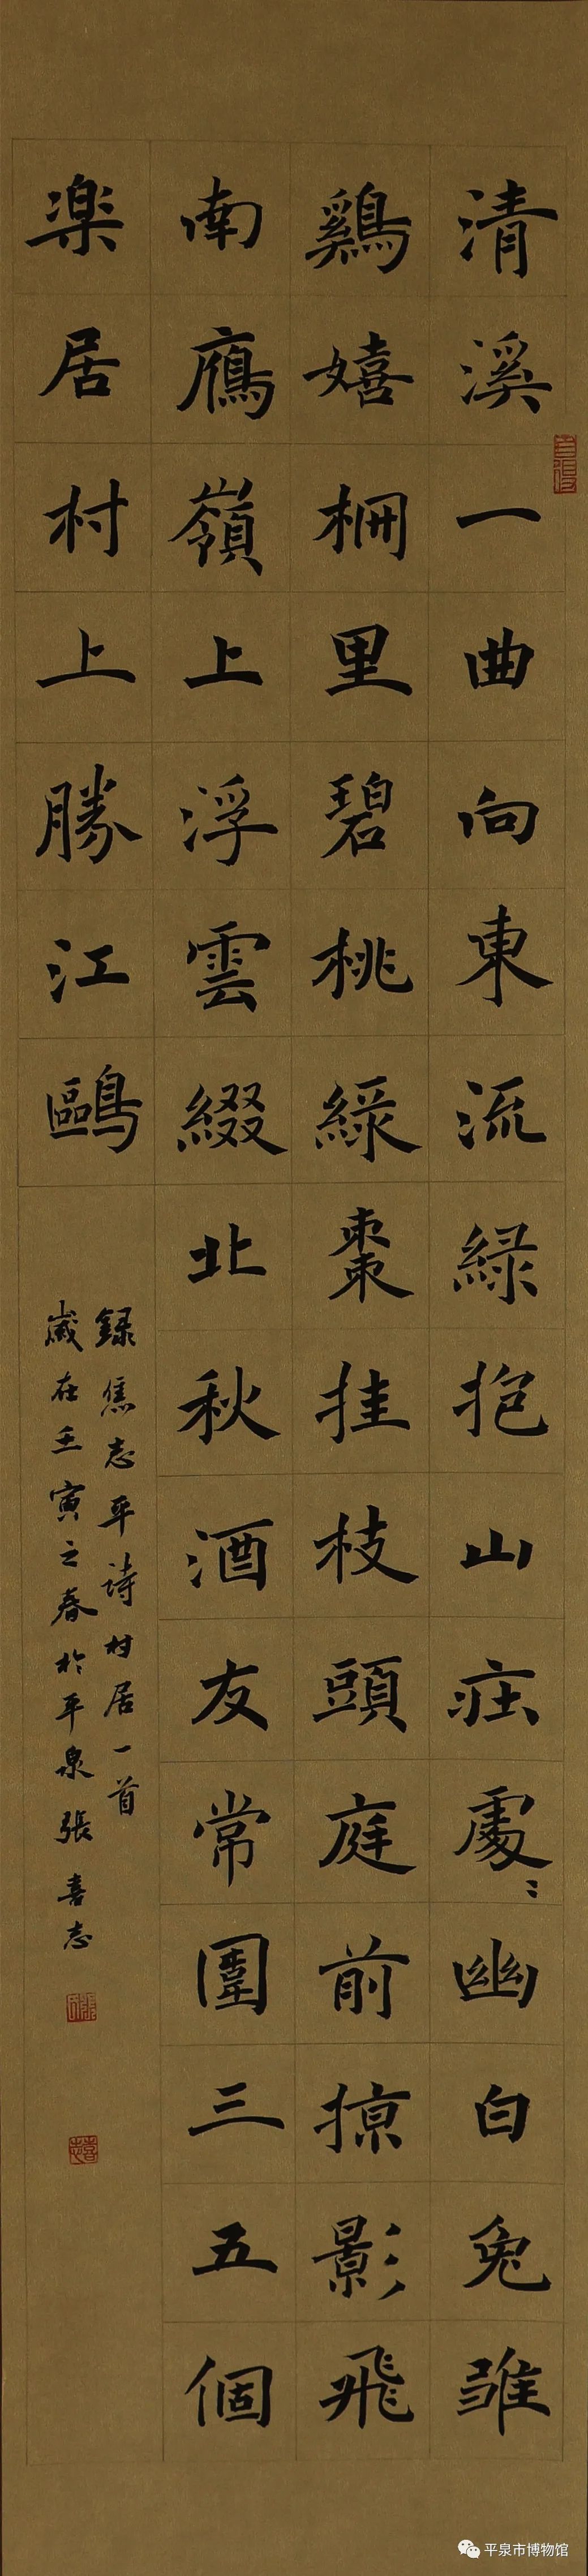 清溪一曲向東流緑抱山庄處〻幽白兔雏
鷄嬉栅里碧桃緑棗挂枝頭庭前掠影飛
南鴈嶺上浮雲綴北秋酒友常圍三五個
楽居村上勝江鷗
録焦志平詩村居一首
歲在壬寅之春於平泉張喜志
喜志
平泉市博物馆